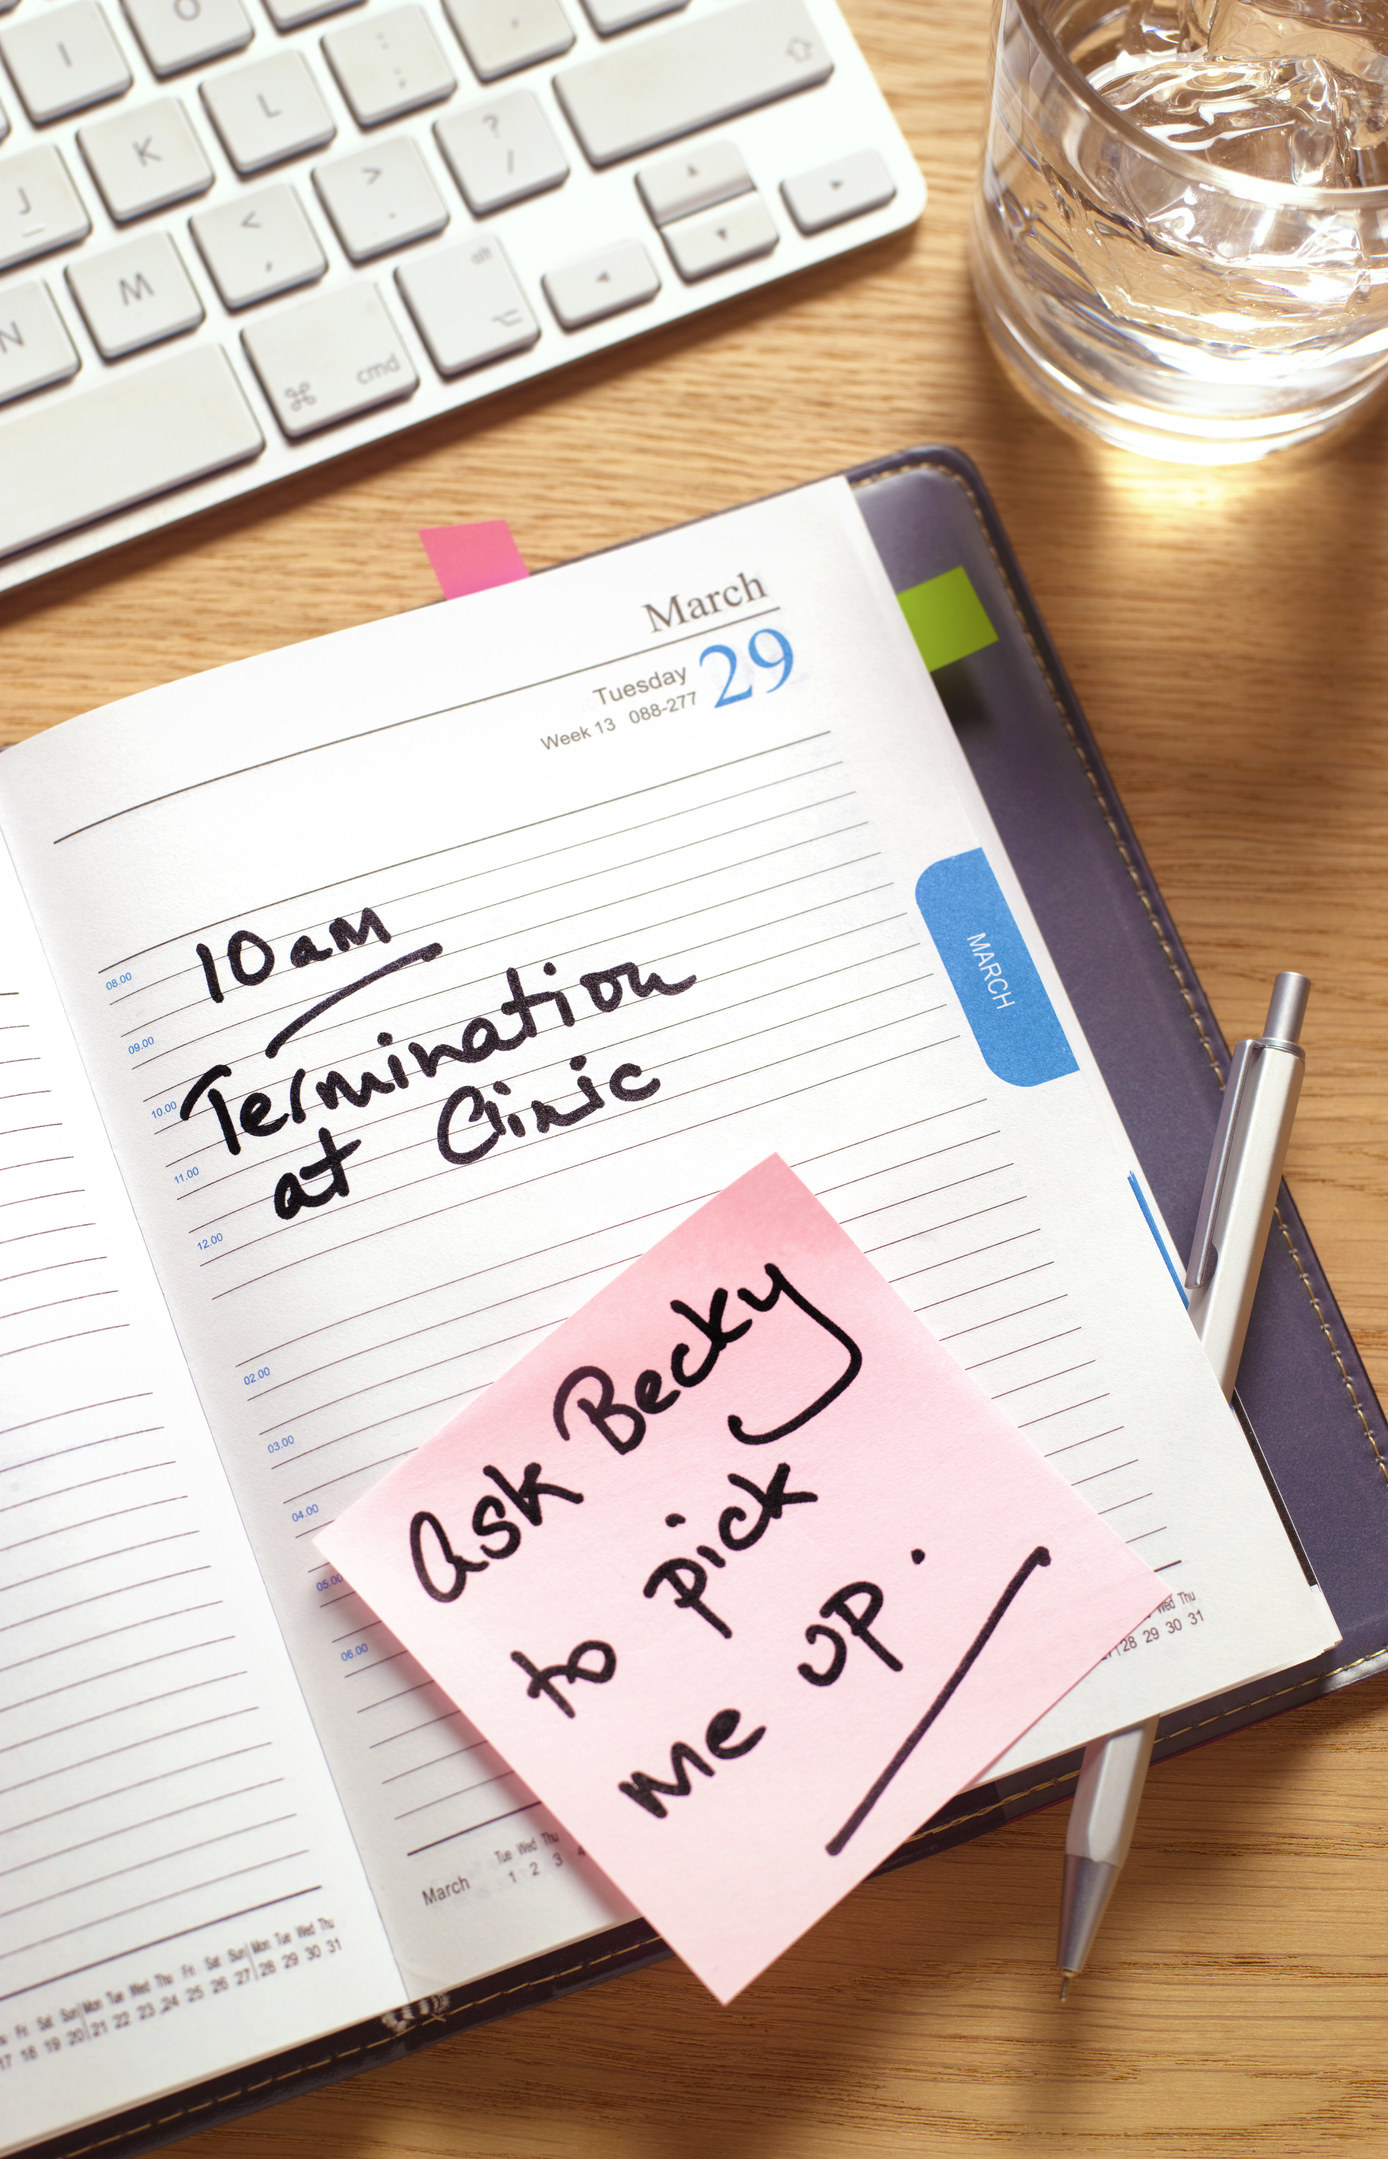 I
O
:
;
J
K
L
.
?
/
N
M
<
,
>
.
alt
cmd
March
Tuesday 29
Week 13 088-277
MARCH
08.00
10am
09.00
Termination
10.00
at Clinic
11.00
12.00
02.00
03.00
04.00
05.00
06.00
Ask Becky
to pick
me up.
Wed Thu
28 29 30 31
Tue Wed Thu
March 1 2 3 4
Fr Sat Sun Mon Tue Wed Thu Fr Sat Sun Mon Tue Wed Thu
17 18 19 20 21 22 23 24 25 26 27 28 29 30 31